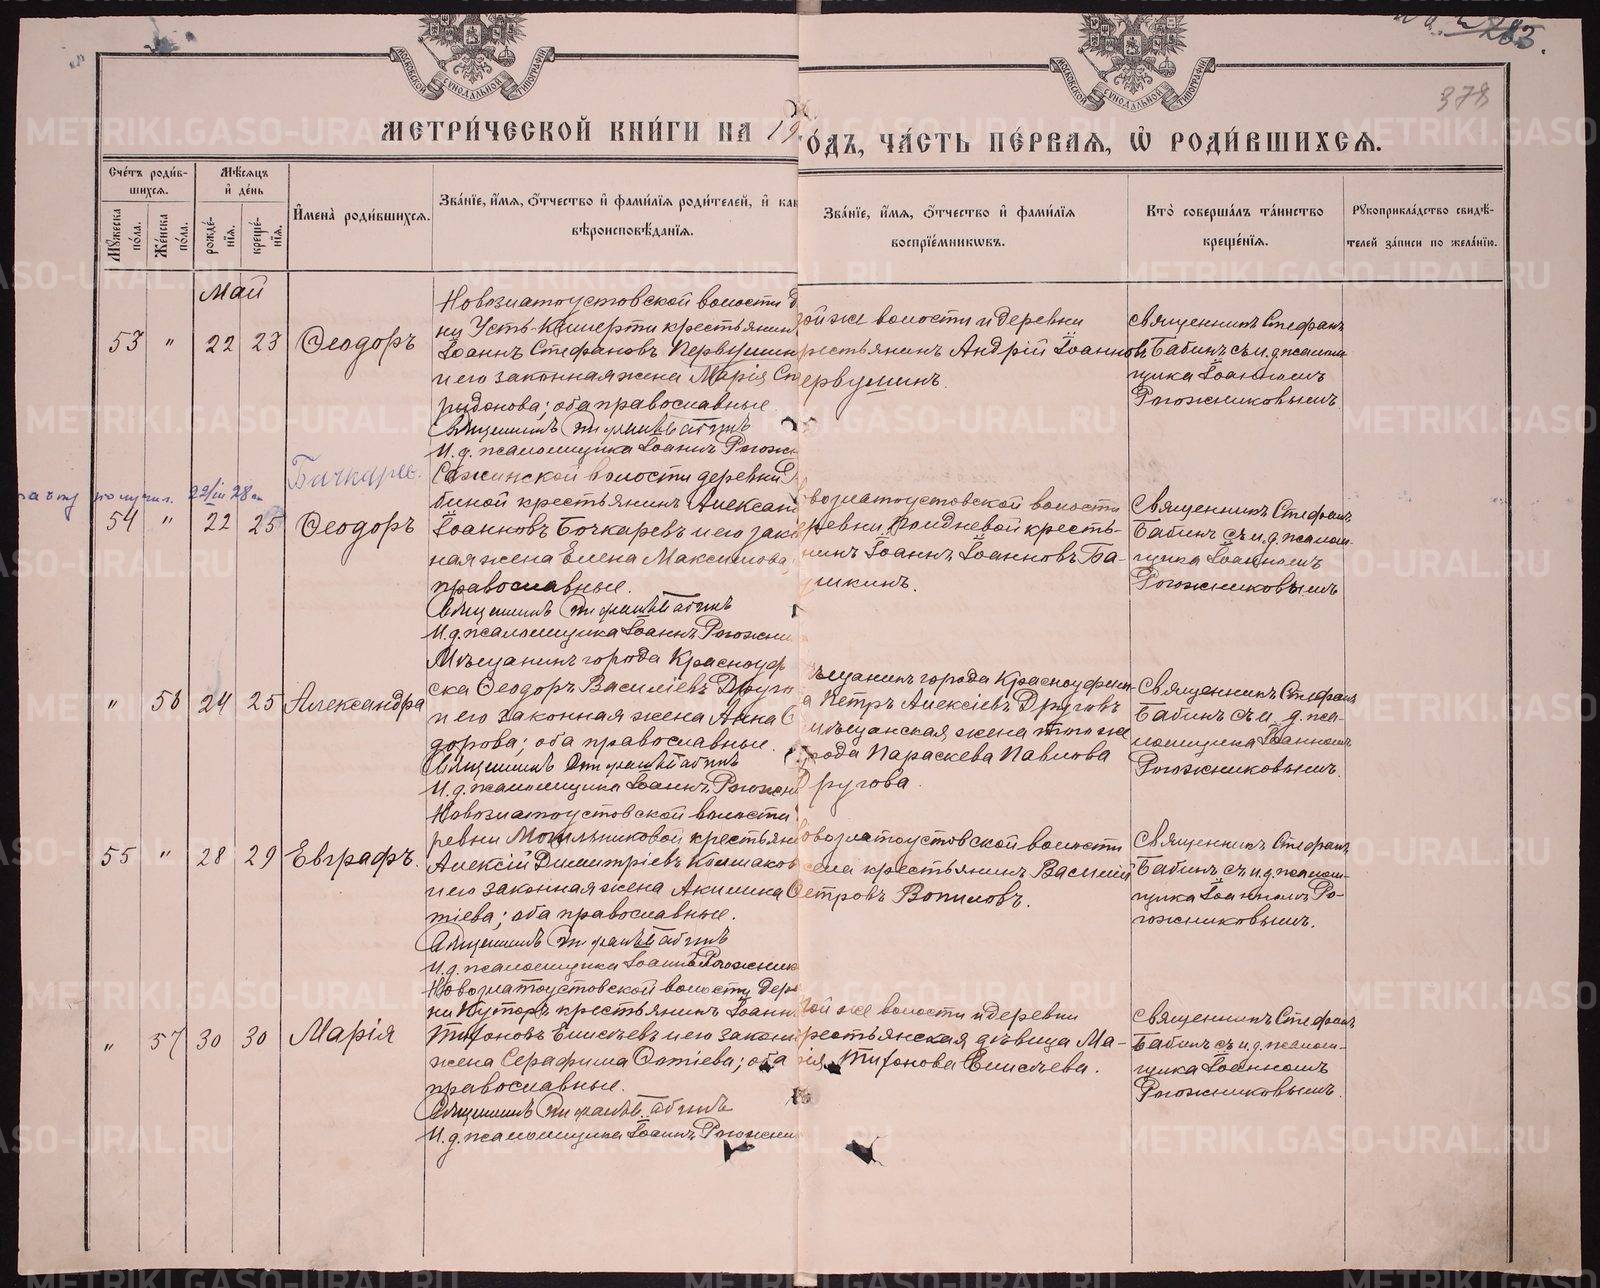 283.
378
МОСКОВСКОЙ СѴНОДАЛЬНОЙ ТИПОГРАФІИ
МОСКОВСКОЙ СѴНОДАЛЬНОЙ ТИПОГРАФІИ
МЕТРИ́ЧЕСКОЙ КНИ́ГИ НА 19
ОДЪ, ЧА́СТЬ ПЕ́РВАЯ, Ѡ РОДИ́ВШИХСЯ.
Сче́тъ роди́в-
шихся.
Мꙋжеска по́ла.
Же́нска по́ла.
Мѣ́сяцъ и҆ де́нь
рожде́-
нїя.
креще́-
нїя.
И҆мена̀ роди́вшихся.
Зва́нїе, и҆́мя, ѻ҆́тчество и҆ фами́лїя роди́телей, и҆ как
вѣроисповѣ́данїя.
Зва́нїе, и҆́мя, ѻ҆́тчество и҆ фами́лїя
воспрїе́мниковъ.
Кто̀ соверша́лъ та́инство
креще́нїя.
Рꙋкоприкла́дство свидѣ́-
телей за́писи по жела́нїю.
Май
53 " 22 23 Ѳеодоръ
Новозлатоустовской волости д
ни Усть-Кишерти крестьянин
Іоаннъ Стефановъ Первушин
и его законная жена Марія Сп
ридонова; оба православные.
Священникъ Стефанъ Бабинъ
И. д. псаломщика Іоаннъ Рогожн
ой же волости и деревни
рестьянинъ Андрій Іоаннов
ервушинъ.
Священникъ Стефанъ
Бабинъ съ и. д. псалом-
щика Іоанномъ
Рогожниковымъ.
Бачкарев.
получил. 22/III 28 г.
54 " 22 25 Ѳеодоръ
Сажинской волости деревни
биной крестьянинъ Алексан
Іоанновъ Бочкаревъ и его зако
ная жена Елена Максимова,
православные.
Священникъ Стефанъ Бабинъ
И. д. псаломщика Іоаннъ Рогожни
возлатоустовской волости
ревни Полдневой кресть-
нинъ Іоаннъ Іоанновъ Ба-
ушкинъ.
Священникъ Стефанъ
Бабинъ съ и. д. псалом-
щика Іоанномъ
Рогожниковымъ
" 56 24 25 Александра
Мѣщанинъ города Красноуф
ска Ѳеодоръ Василіевъ Друго
и его законная жена Анна
дорова; оба православные.
Священникъ Стефанъ Бабинъ
И. д. псаломщика Іоаннъ Рогожни
ѣщанинъ города Красноуфим-
а Петръ Алексіевъ Друговъ
мѣщанская жена того же
рода Параскева Павлова
Другова.
Священникъ Стефанъ
Бабинъ съ и. д. пса-
ломщика Іоанномъ
Рогожниковымъ.
55 " 28 29 Евграфъ.
Новозлатоустовской волости
ревни Могильниковой крестьян
Алексій Димитріевъ Колмаков
и его законная жена Акилина
тіева; оба православные.
Священникъ Стефанъ Бабинъ
И. д. псаломщика Іоаннъ Рогожник
овозлатоустовской волости
села крестьянинъ Василій
етровъ Вопиловъ.
Священникъ Стефанъ
Бабинъ съ и. д. псалом-
щика Іоанномъ Ро-
гожниковымъ.
" 57 30 30 Марія
Новозлатоустовской волости дере
ни Хуторъ крестьянинъ Іоанн
Тифоновъ Елисѣевъ и его законн
жена Серафима Фотіева; оба
православные.
Священникъ Стефанъ Бабинъ
И. д. псаломщика Іоаннъ Рогожни
ой же волости и деревни
рестьянская дѣвица Ма-
рія Тифонова Елисѣева.
Священникъ Стефанъ
Бабинъ съ и. д. псалом-
щика Іоанномъ
Рогожниковымъ.
METRIKI.GASO-URAL.RU